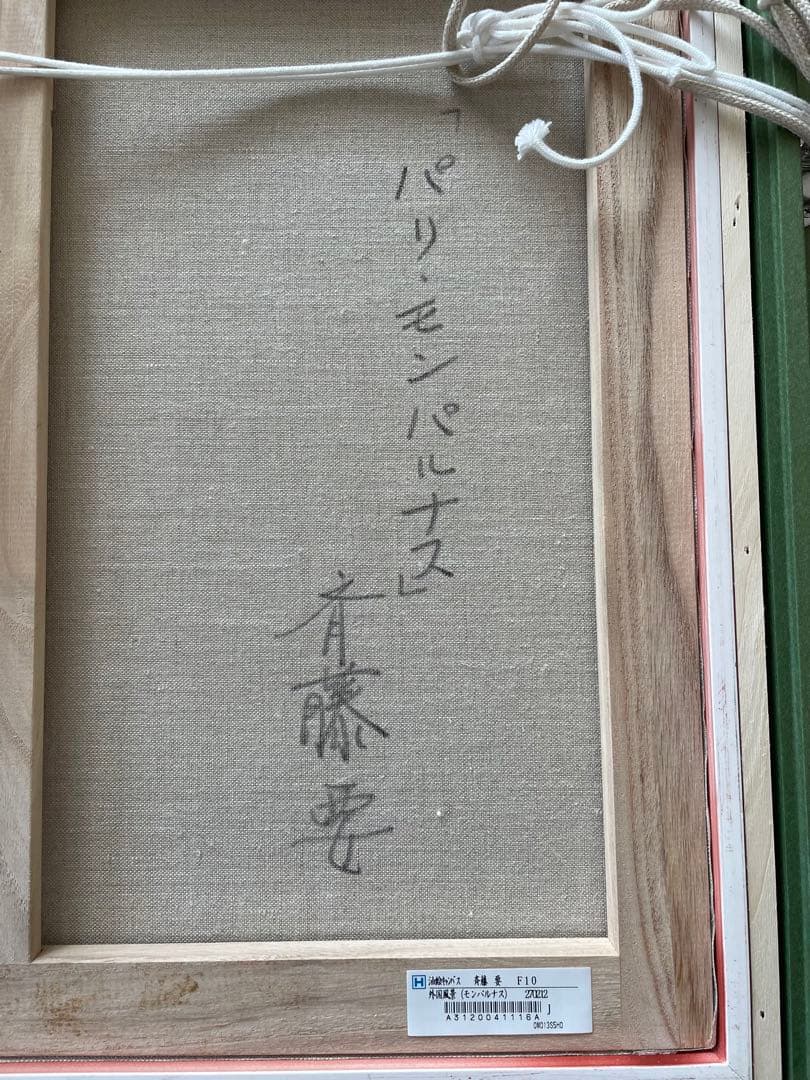 「パリ・モンパルナス」
斉藤要
H 油絵キャンバス 斉藤 要 F10
外国風景(モンパルナス) 270212
J
A3120041116A